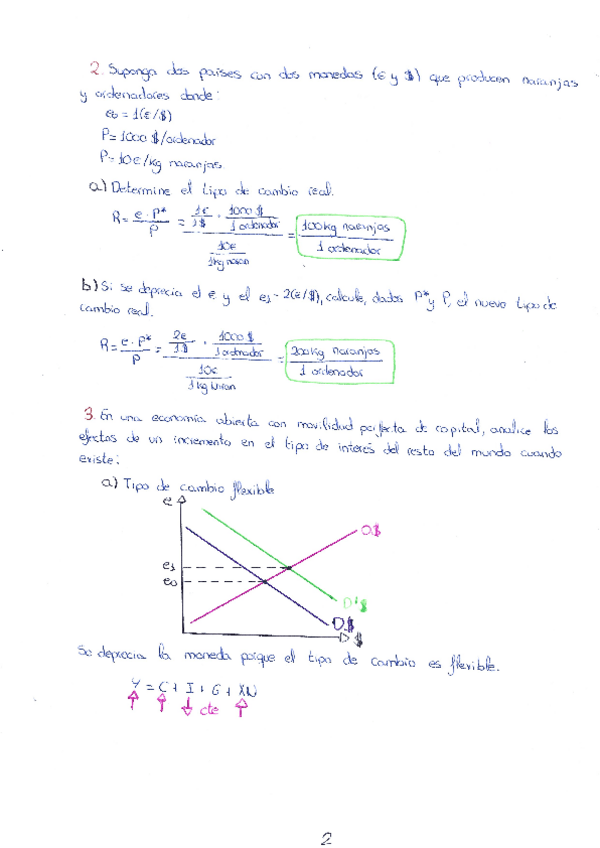 2. Suponga dos países con dos monedas (€ y $) que producen naranjas
y ordenadores donde:
e₀ = 1(€/$)
P= 1000 $/ordenador
P= 10€/kg naranjas
a) Determine el tipo de cambio real.
R = e · P* / P = 1€ / 1$ · 1000 $ / 1 ordenador / 10€ / 1kg naran = 100 kg naranjas / 1 ordenador
b) Si se deprecia el € y el e₁ = 2(€/$), calcule, dados P* y P, el nuevo tipo de
cambio real.
R = e · P* / P = 2€ / 1$ · 1000 $ / 1 ordenador / 10€ / 1 kg naran = 200 kg naranjas / 1 ordenador
3. En una economía abierta con movilidad perfecta de capital, analice los
efectos de un incremento en el tipo de interés del resto del mundo cuando
existe:
a) Tipo de cambio flexible
e
O$
e₁
e₀
D'$
D$
$
Se deprecia la moneda porque el tipo de cambio es flexible.
Y = C + I + G + XN
↑ ↑ ↓ cte ↑
2